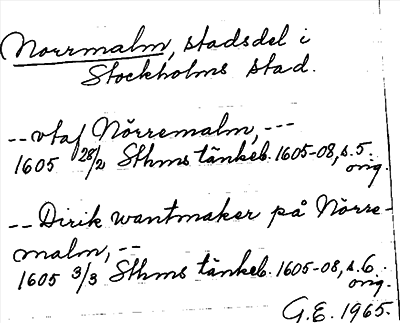 Norrmalm, stadsdel i
Stockholms stad.
-- vtaf Nörremalm, ---
1605 28/2 Sthms tänkeb. 1605-08, s. 5.
orig.
-- Dirik wantmaker på Nörre-
malm, --
1605 3/3 Sthms tänkeb. 1605-08, s. 6.
orig.
G.E. 1965.